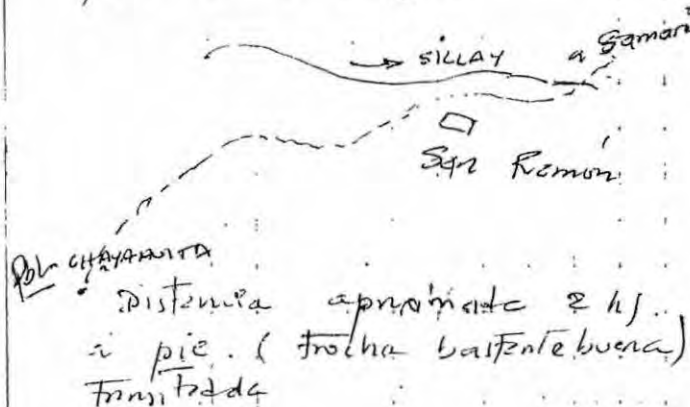 → SILLAY
a Samari
San Ramón
Pobl CHAYAHUITA
Distancia aproximada 2 hs.
a pie. (trocha bastante buena)
Transitada